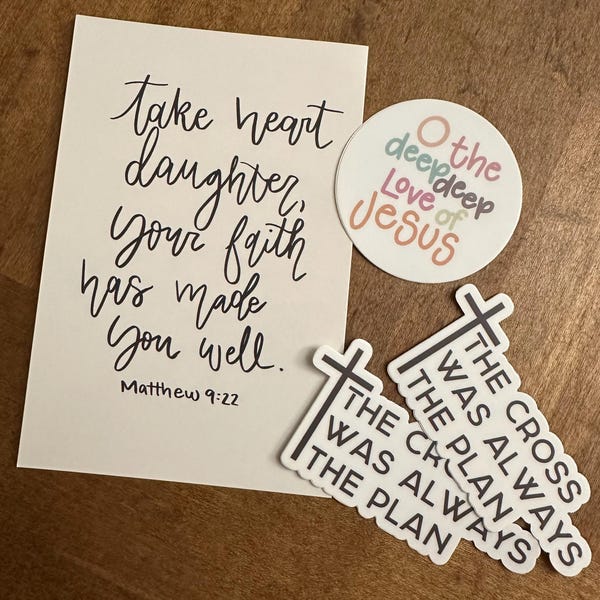 take heart
daughter,
your faith
has made
you well.
Matthew 9:22
O the
deep deep
Love of
Jesus
THE CROSS
WAS ALWAYS
THE PLAN
THE CR
WAS ALWAYS
THE PLAN